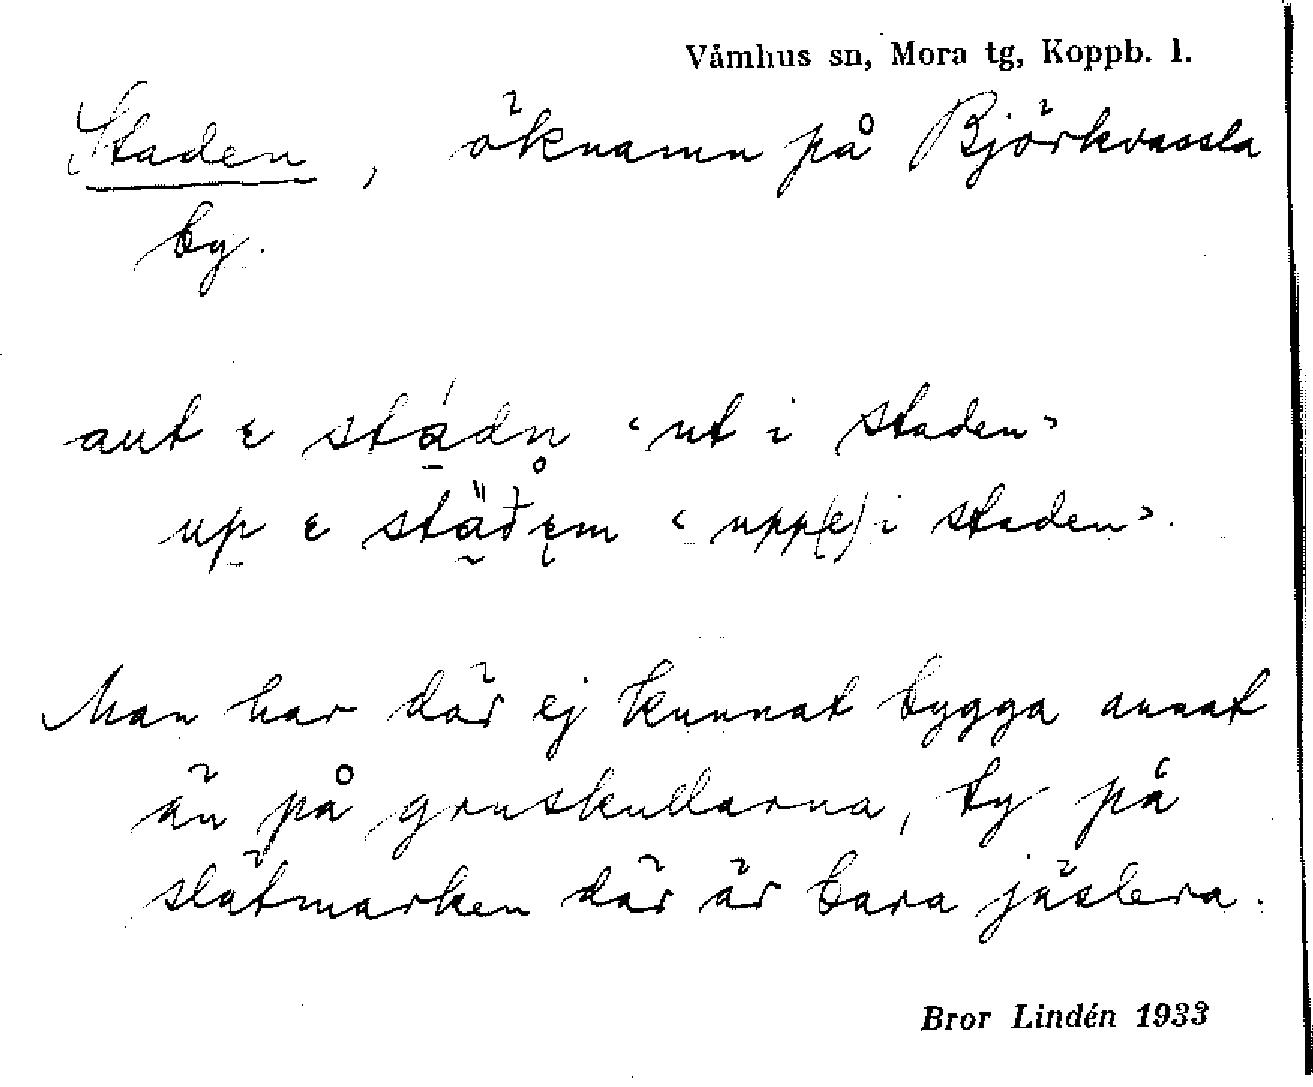 Våmhus sn, Mora tg, Koppb. l.
Staden, öknamn på Björkvassla
by.
aut ε stádn ‹ut i staden›
up ε stä̀đe̥m ‹upp(e) i staden›.
Man har där ej kunnat bygga annat
än på gruskullarna, ty på
slätmarken där är bara jäslera.
Bror Lindén 1933